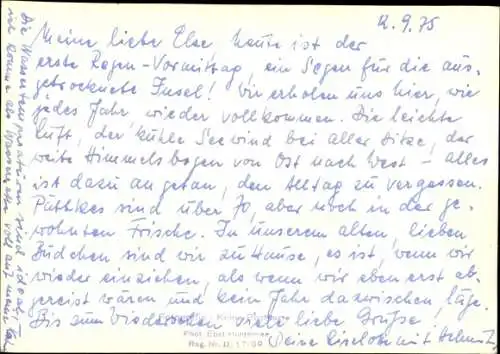 12.9.75
Meine liebe Else, heute ist der
erste Regen-Vormittag, ein Segen für die aus-
getrocknete Insel! Wir erholen uns hier, wie
jedes Jahr, wieder vollkommen. Die leichte
Luft, der kühle Seewind bei aller Hitze, der
weite Himmelsbogen von Ost nach West – alles
ist dazu angetan, den Alltag zu vergessen.
Puttkes sind über 70, aber noch in der ge-
wohnten Frische. In unserem alten, lieben
Büdchen sind wir zu Hause, es ist, wenn wir
wieder einziehen, als wenn wir eben erst ab-
gereist wären und kein Jahr dazwischen läge.
Bis zum Wiedersehen viele liebe Grüße,
Deine Liselotte mit Helmut
Die Wassertemperaturen sind ideal
ich komme als voll auf meine